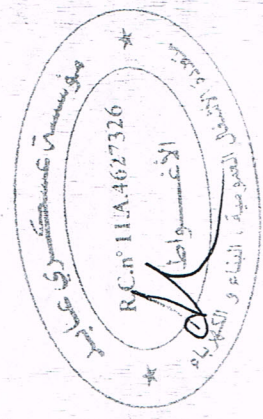 مؤسسة عسكري عابر
R.C.n° 11.A.4627326
الأغــواط
الأشغال العمومية ، البناء و الكهرباء